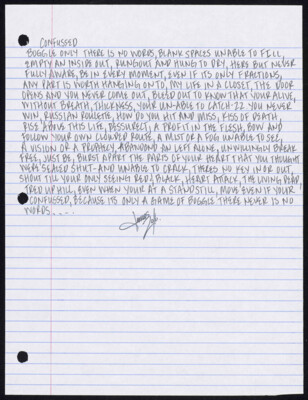 CONFUSSED
BOGGLE ONLY THERE IS NO WORDS, BLANK SPACES UNABLE TO FILL,
EMPTY AN INSIDE OUT, RUNGOUT AND HUNG TO DRY, HERE BUT NEVER
FULLY AWARE, BE IN EVERY MOMENT, EVEN IF ITS ONLY FRACTIONS,
ANY PART IS WORTH HANGING ONTO, MY LIFE IN A CLOSET, THE DOOR
OPENS AND YOU NEVER COME OUT, BLEED OUT TO KNOW THAT YOUR ALIVE,
WITHOUT BREATH, THICKNESS, YOUR UN-ABLE TO CATCH-22 YOU NEVER
WIN, RUSSIAN ROULETTE, HOW DO YOU HIT AND MISS, KISS OF DEATH
RISE ABOVE THIS LIFE, RESSURECT, A PROFIT IN THE FLESH, BOW AND
FOLLOW YOUR OWN CLOUDED ROUTE, A MIST OR A FOG UNABLE TO SEE,
A VISION OR A PROPHECY, ABANDOND AN LEFT ALONE, UNWILLINGLY BREAK
FREE, JUST BE, BURST APART THE PARTS OF YOUR HEART THAT YOU THOUGHT
WERE SEALED SHUT- AND UNABLE TO CRACK, THERES NO KEY IN OR OUT,
SHOUT TILL YOUR ONLY SEEING RED & BLACK, HEART ATTACK, THE LIVING DEAD,
TRED UP HILL, EVEN WHEN YOUR AT A STANDSTILL, MOVE EVEN IF YOUR
CONFUSSED, BECAUSE ITS ONLY A GAME OF BOGGLE THERE NEVER IS NO
WORDS.....